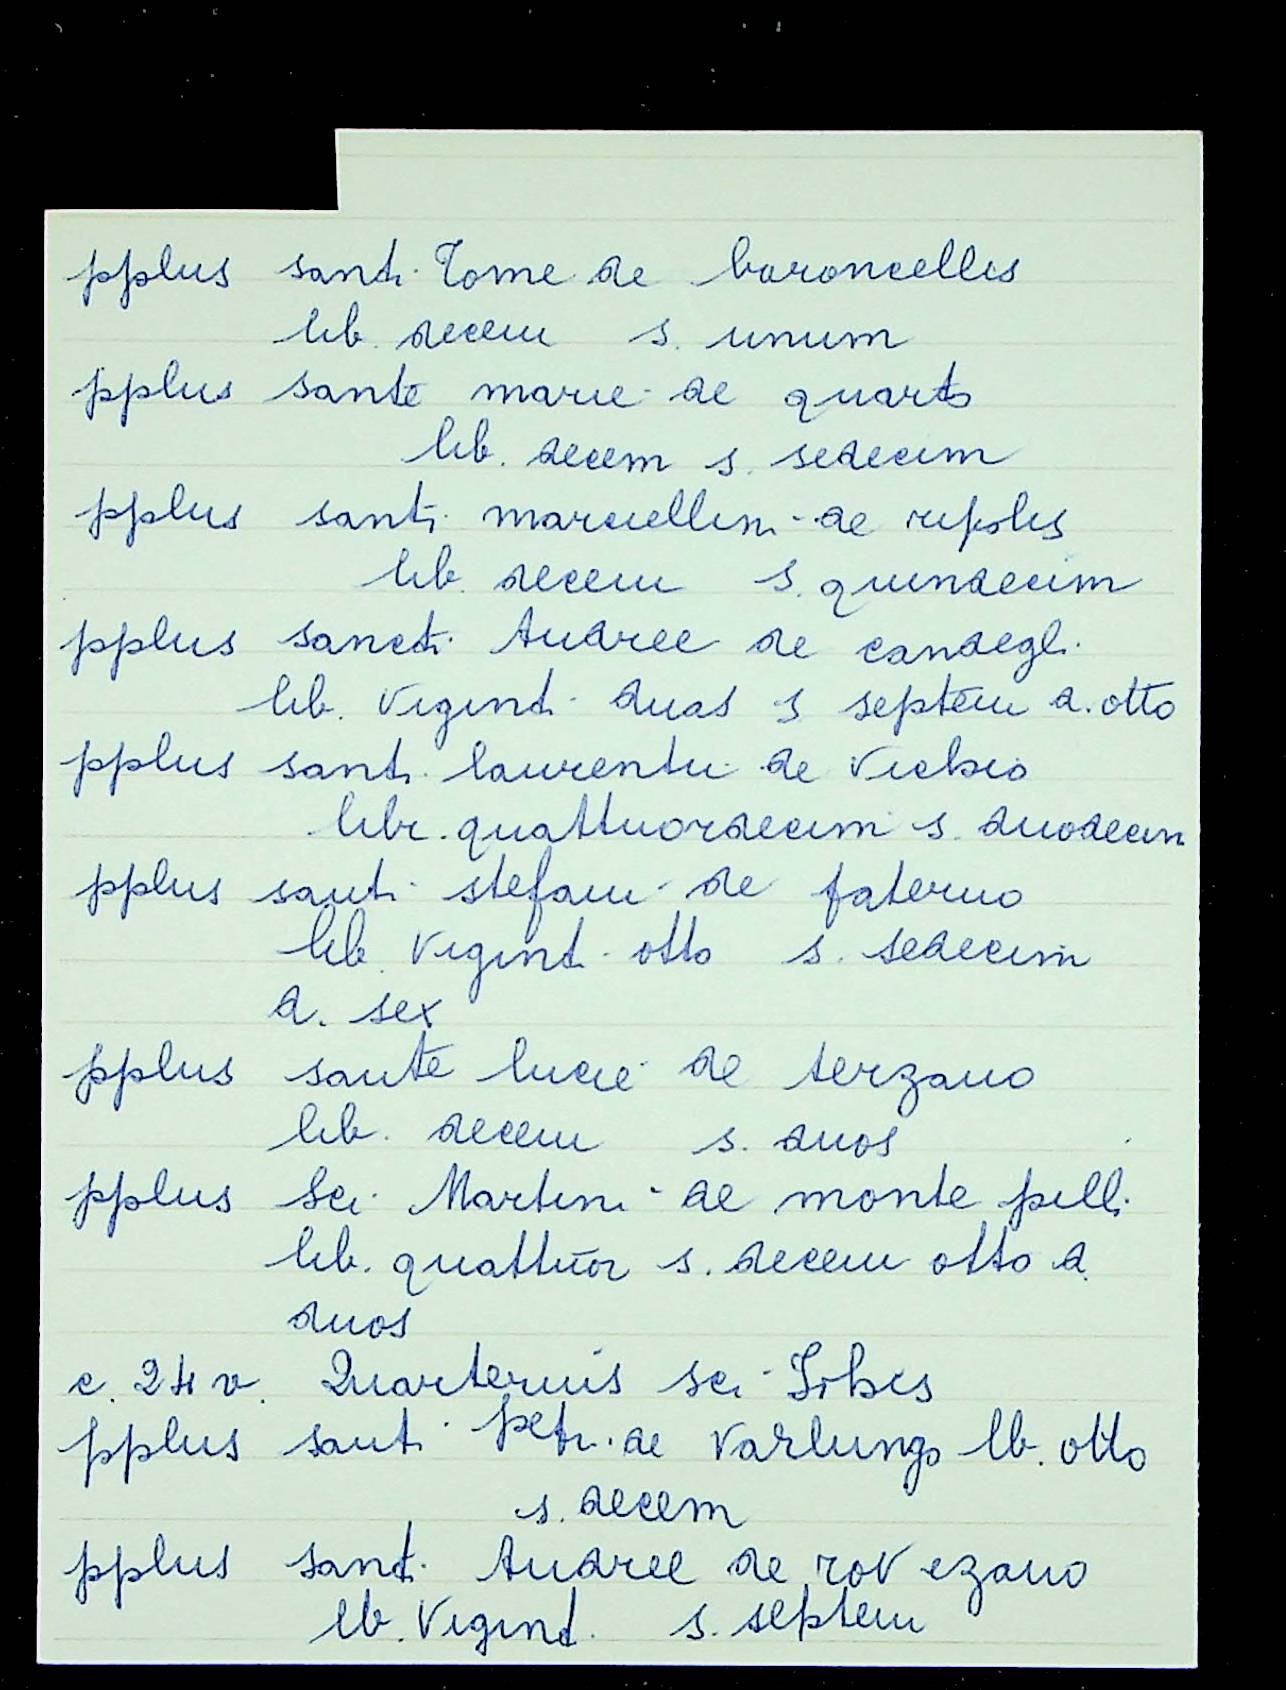 pplus santi Tome de baroncellis
lib. decem s. unum
pplus sante marie de quarto
lib. decem s. sedecim
pplus santi marciellini de ripolis
lib. decem s. quindecim
pplus sancti Andree de candegli
lib. viginti duas s septem d. otto
pplus santi laurentii de vichio
libr. quattuordecim s. duodecim
pplus santi stefani de paterno
lib. viginti otto s. sedecim
d. sex
pplus sante lucie de terzano
lib. decem s. duos
pplus sci Martini de monte pilli
lib. quattuor s. decem otto d.
duos
c. 24 v. Quarteruis sci
pplus santi petri de varlungo lb. otto
s. decem
pplus santi Andree de rovezano
lb. viginti s. septem